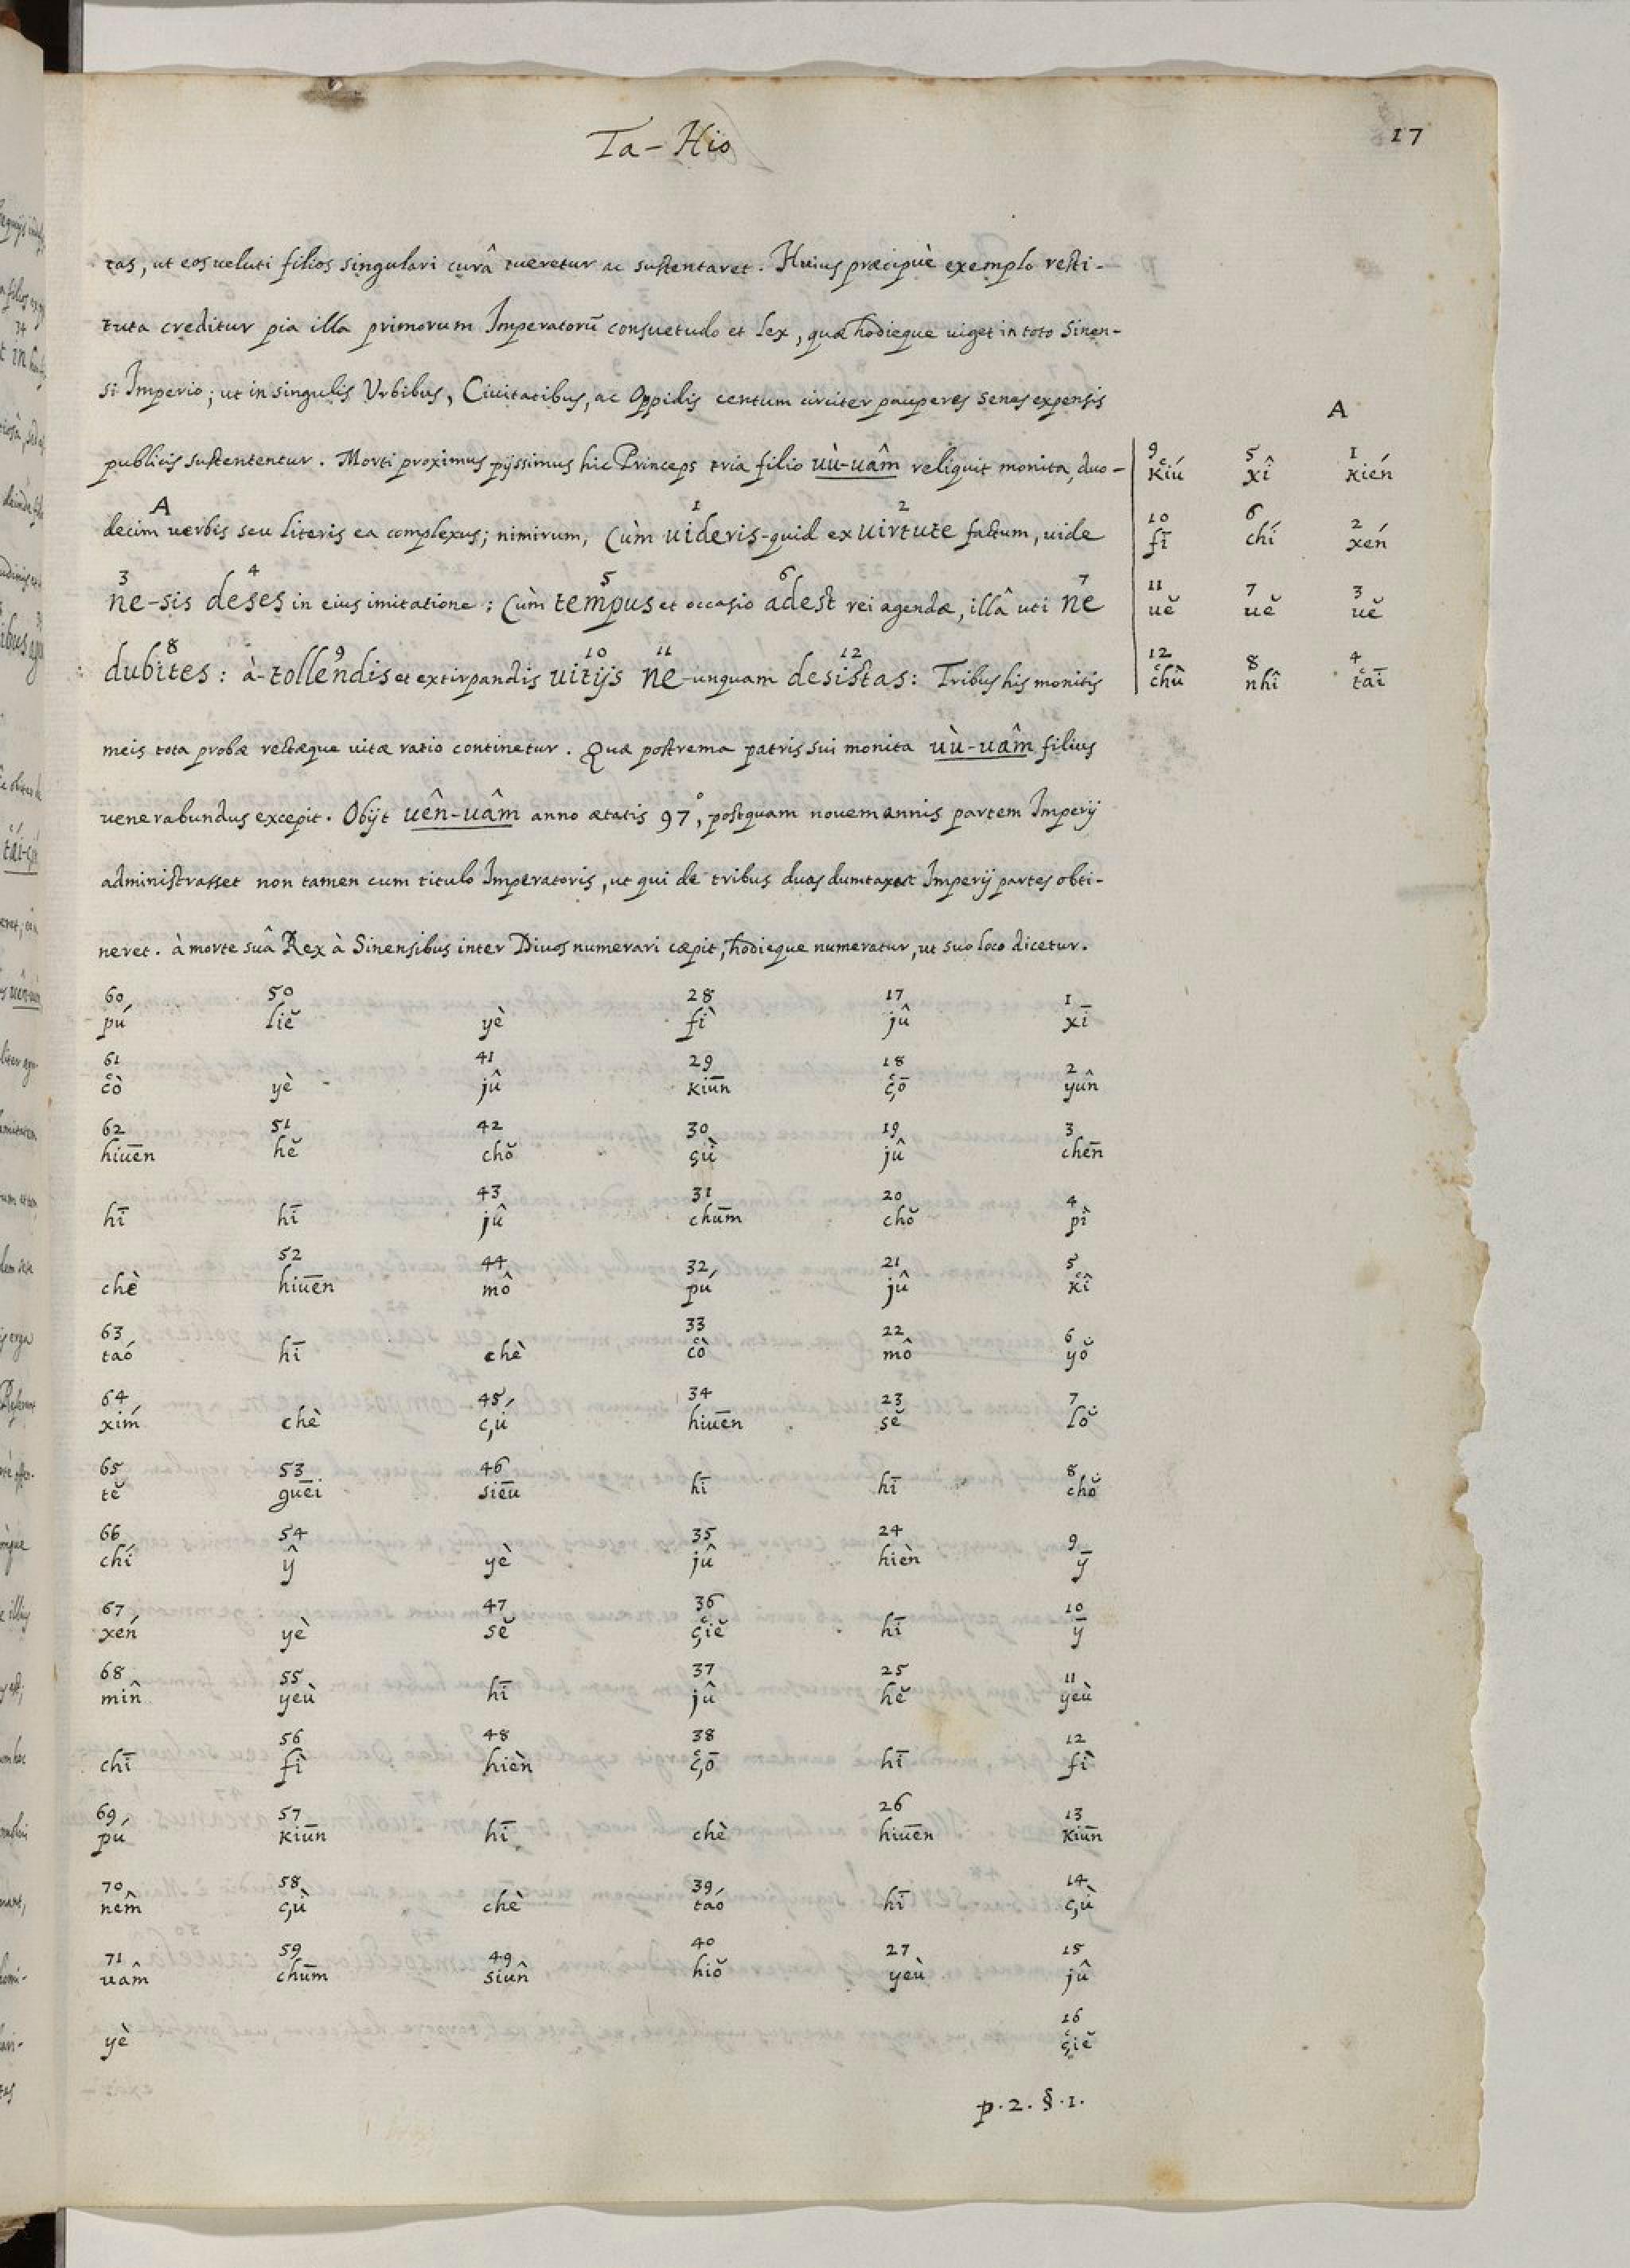 Ta-Hio
17
tas, ut eos veluti filios singulari curâ tueretur ac sustentaret. Huius præcipuè exemplo resti-
tuta creditur pia illa primorum Imperatorũ consuetudo et lex, quæ hodieque uiget in toto Sinen-
si Imperio; ut in singulis Vrbibus, Ciuitatibus, ac Oppidis centum circiter pauperes senes expensis
publicis sustententur. Morti proximus pijssimus hic Princeps tria filio uù-uâm reliquit monita, duo-
A 1 2
decim uerbis seu literis ea complexus; nimirum, Cùm uideris-quid ex uirtute factum, uide
3 4 5 6 7
ne-sis deses in eius imitatione: Cùm tempus et occasio adest rei agendæ, illâ uti ne
8 9 10 11 12
dubites: à-tollendis et extirpandis uitijs ne-unquam desistas: Tribus his monitis
meis tota probæ rectæque uitæ ratio continetur. Quæ postrema patris sui monita uù-uâm filius
uenerabundus excepit. Obijt uên-uâm anno ætatis 97°, postquam nouem annis partem Imperij
administrasset non tamen cum titulo Imperatoris, ut qui de tribus duas dumtaxat Imperij partes obti-
neret. à morte suâ Rex à Sinensibus inter Diuos numerari cæpit, hodieque numeratur, ut suo loco dicetur.
A
9 5 1
kiú xî kién
10 6 2
fī chí xén
11 7 3
uĕ uĕ uĕ
12 8 4
chù nhî tāi
60 50 28 17 1
pú liĕ yè fì jû xī
61 41 29 18 2
cò yè jû kiūn çō yûn
62 51 42 30 19 3
hiuēn hĕ chŏ çù jû chēn
43 31 20 4
hī hī jû chūm chŏ pì
52 44 32 21 5
chè hiuēn mô pú jû kî
63 33 22 6
taó hī chè cò mô yŏ
64 45 34 23 7
xím chè çú hiuēn sĕ lŏ
65 53 46 8
tĕ guēi siēu hī hī chŏ
66 54 35 24 9
chí ŷ yè jû hièn ȳ
67 47 36 10
xén yè sĕ çiĕ hī ȳ
68 55 37 25 11
mîn yeù hī jû hĕ yeù
56 48 38 12
chī fì hièn çō hī fì
69 57 26 13
pú kiūn hī chè hiuēn kiūn
70 58 39 14
nêm çù chè taó hī çù
71 59 49 40 27 15
uâm chūm siûn hiŏ yeù jû
16
yè çiĕ
p. 2. §. 1.